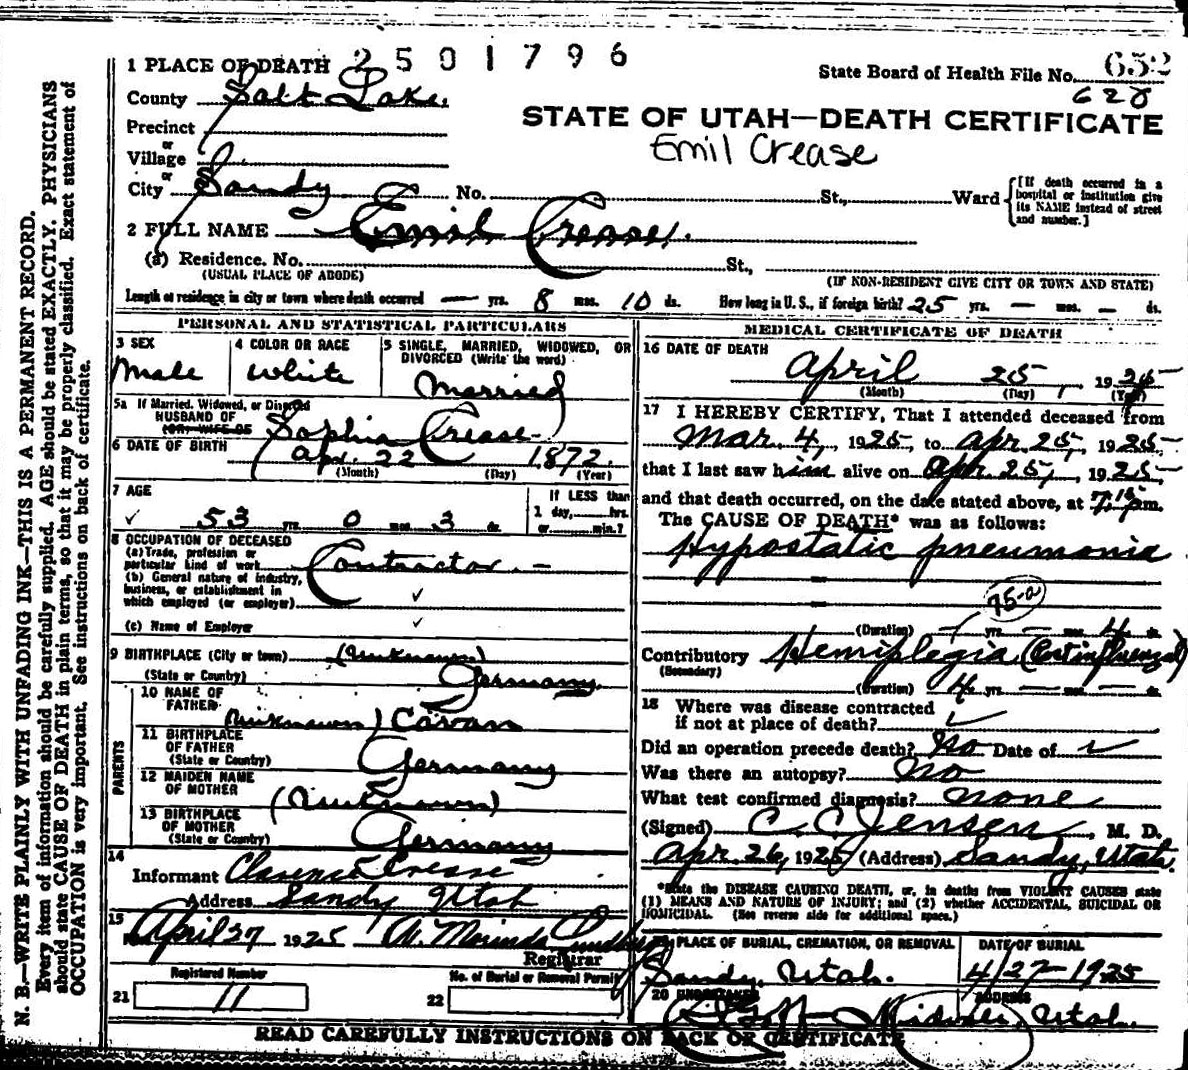 2501796
1 PLACE OF DEATH
State Board of Health File No. 652
628
County Salt Lake.
STATE OF UTAH—DEATH CERTIFICATE
Precinct
Emil Crease
or
Village
or
City Sandy No. St., Ward
[If death occurred in a hospital or institution give its NAME instead of street and number.]
2 FULL NAME Emil Crease.
(a) Residence. No. St.,
(USUAL PLACE OF ABODE) (IF NON-RESIDENT GIVE CITY OR TOWN AND STATE)
Length of residence in city or town where death occurred — yrs. 8 mos. 10 ds. How long in U. S., if foreign birth? 25 yrs. — mos. — ds.
PERSONAL AND STATISTICAL PARTICULARS
3 SEX
Male
4 COLOR OR RACE
White
5 SINGLE, MARRIED, WIDOWED, OR DIVORCED (Write the word)
Married
5a If Married, Widowed, or Divorced
HUSBAND OF
(OR) WIFE OF
Sophia Crease
6 DATE OF BIRTH
Apr. 22 1872.
(Month) (Day) (Year)
7 AGE
✓ 53 yrs. 0 mos. 3 ds.
If LESS than
1 day, hrs.
or min.?
8 OCCUPATION OF DECEASED
(a) Trade, profession or
particular kind of work Contractor —
(b) General nature of industry,
business, or establishment in
which employed (or employer) ✓
(c) Name of Employer ✓
9 BIRTHPLACE (City or town) (Unknown)
(State or Country) Germany.
PARENTS
10 NAME OF
FATHER
(Unknown)
11 BIRTHPLACE
OF FATHER
(State or Country) Germany
12 MAIDEN NAME
OF MOTHER
(Unknown)
13 BIRTHPLACE
OF MOTHER
(State or Country) Germany
14
Informant Clarence Crease
Address Sandy Utah
15
April 27 1925 A. Morinda
Registrar
Registered Number
21 11
No. of Burial or Removal Permit
22
MEDICAL CERTIFICATE OF DEATH
16 DATE OF DEATH
April 25, 1925
(Month) (Day) (Year)
17 I HEREBY CERTIFY, That I attended deceased from
Mar. 4, 1925 to Apr. 25, 1925
that I last saw him alive on Apr. 25, 1925
and that death occurred, on the date stated above, at 7:15 p.m.
The CAUSE OF DEATH* was as follows:
Hypostatic pneumonia
75-a
(Duration) — yrs. — mos. 4 ds.
Contributory Hemiplegia
(Secondary)
(Duration) 4 yrs. — mos. — ds.
18 Where was disease contracted
if not at place of death? ✓
Did an operation precede death? No Date of ✓
Was there an autopsy? No
What test confirmed diagnosis? none
(Signed) C. C. Jensen, M. D.
Apr. 26, 1925 (Address) Sandy, Utah.
*State the DISEASE CAUSING DEATH, or, in deaths from VIOLENT CAUSES state
(1) MEANS AND NATURE OF INJURY; and (2) whether ACCIDENTAL, SUICIDAL OR
HOMICIDAL. (See reverse side for additional space.)
PLACE OF BURIAL, CREMATION, OR REMOVAL
Sandy, Utah.
DATE OF BURIAL
4/27-1925
20 UNDERTAKER
ADDRESS
Goff Midvale, Utah.
READ CAREFULLY INSTRUCTIONS ON BACK OF CERTIFICATE
N. B.—WRITE PLAINLY WITH UNFADING INK—THIS IS A PERMANENT RECORD.
Every item of information should be carefully supplied. AGE should be stated EXACTLY. PHYSICIANS
should state CAUSE OF DEATH in plain terms, so that it may be properly classified. Exact statement of
OCCUPATION is very important. See instructions on back of certificate.